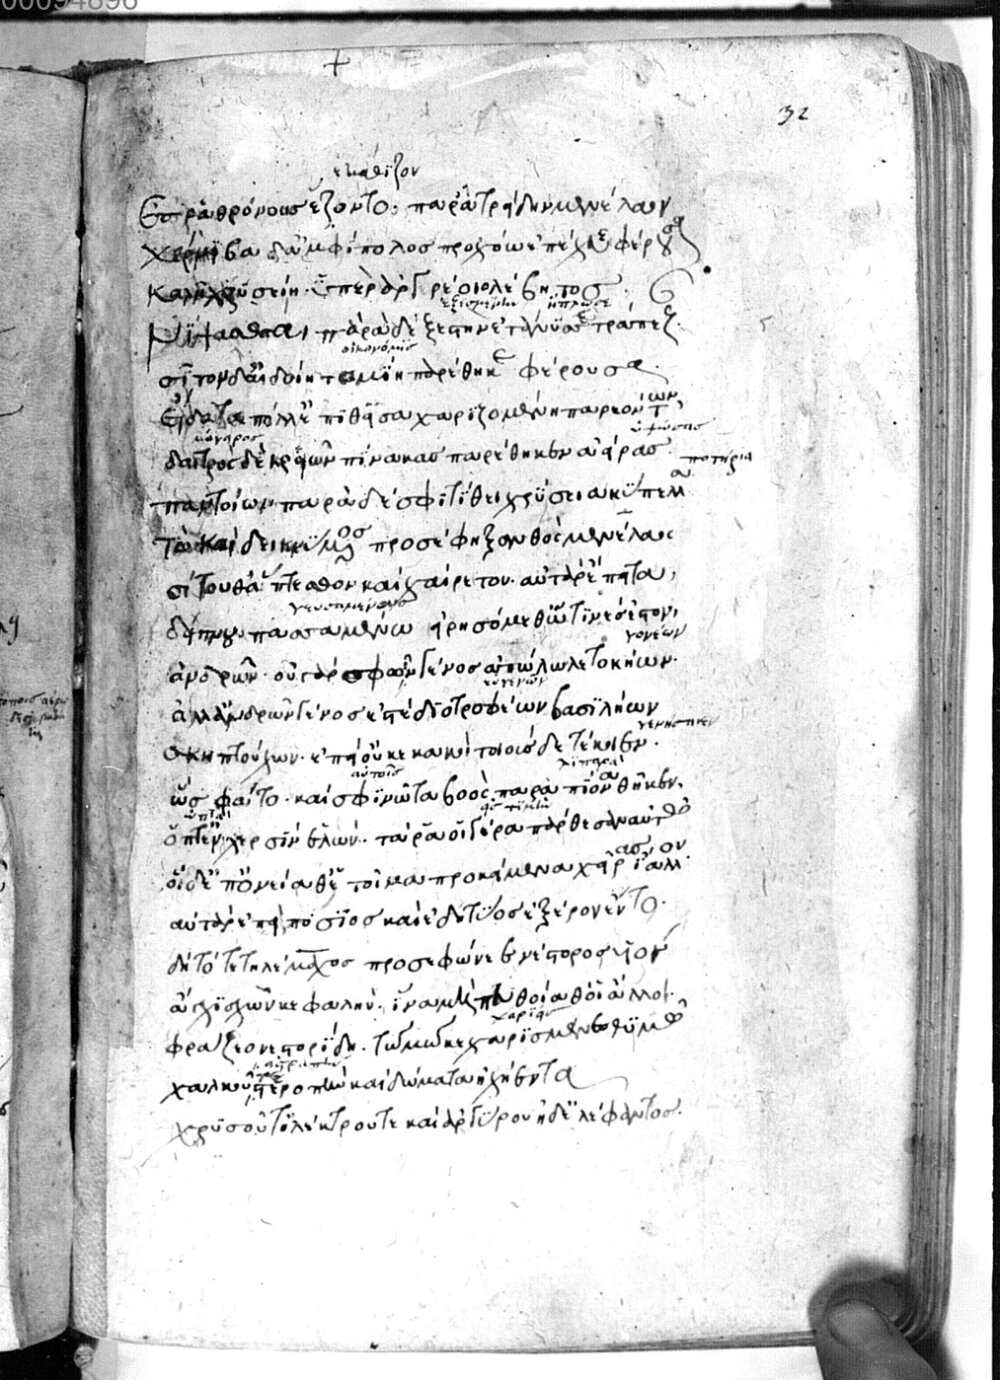 00094896
32
ἐκάθιζον
Ἐς ῥα θρόνους ἕζοντο παρ' ἀτρείδην μενέλαον
χέρνιβα δ' ἀμφίπολος προχόῳ ἐπέχευε φέρουσα
καλῇ χρυσείῃ ὑπὲρ ἀργυρέοιο λέβητος
ἐξεσμένην ἥπλωσε
νίψασθαι παρὰ δὲ ξεστὴν ἐτάνυσε τράπεζ
οἰκονόμος
σῖτον δ' αἰδοίη ταμίη παρέθηκε φέρουσα
εἴδατα πόλλ' ἐπιθεῖσα χαριζομένη παρεόντων
μάγειρος ὑψώσας
δαιτρὸς δὲ κρειῶν πίνακας παρέθηκεν ἀείρας
ποτήρια
παντοίων παρὰ δέ σφι τίθει χρύσεια κύπελλα
τὼ καὶ δεικνύμενος προσέφη ξανθὸς μενέλαος
σίτου θ' ἅπτεσθον καὶ χαίρετον αὐτὰρ ἔπειτα
γευσαμένους
δείπνου πασσαμένω εἰρησόμεθ' οἵτινές ἐστον
γονέων
ἀνδρῶν οὐ γὰρ σφῶν γένος ἀπόλωλε τοκήων
εὐγενῶν
ἀλλ' ἀνδρῶν γένος ἐστὲ διοτροφέων βασιλήων
γεννήσειεν
σκηπτούχων ἐπεὶ οὔ κε κακοὶ τοιούσδε τέκοιεν
αὐτοῖς λιπαρὰ
ὣς φάτο καί σφιν νῶτα βοὸς παρὰ πίονα θῆκεν
ὀπτὰ εἰς τιμὴν
ὄπτ' ἐν χερσὶν ἑλών τά ῥά οἱ γέρα πάρθεσαν αὐτῷ
οἱ δ' ἐπ' ὀνείαθ' ἑτοῖμα προκείμενα χεῖρας ἴαλλον
αὐτὰρ ἐπεὶ πόσιος καὶ ἐδητύος ἐξ ἔρον ἕντο
δὴ τότε τηλέμαχος προσεφώνεε νέστορος υἱόν
ἄγχι σχὼν κεφαλὴν ἵνα μὴ πευθοίαθ' οἱ ἄλλοι
φράζεο νεστορίδη τῷ ἐμῷ κεχαρισμένε θυμῷ
χαλκοῦ τε στεροπὴν καὶ δώματα ἠχήεντα
χρυσοῦ τ' ἠλέκτρου τε καὶ ἀργύρου ἠδ' ἐλέφαντος